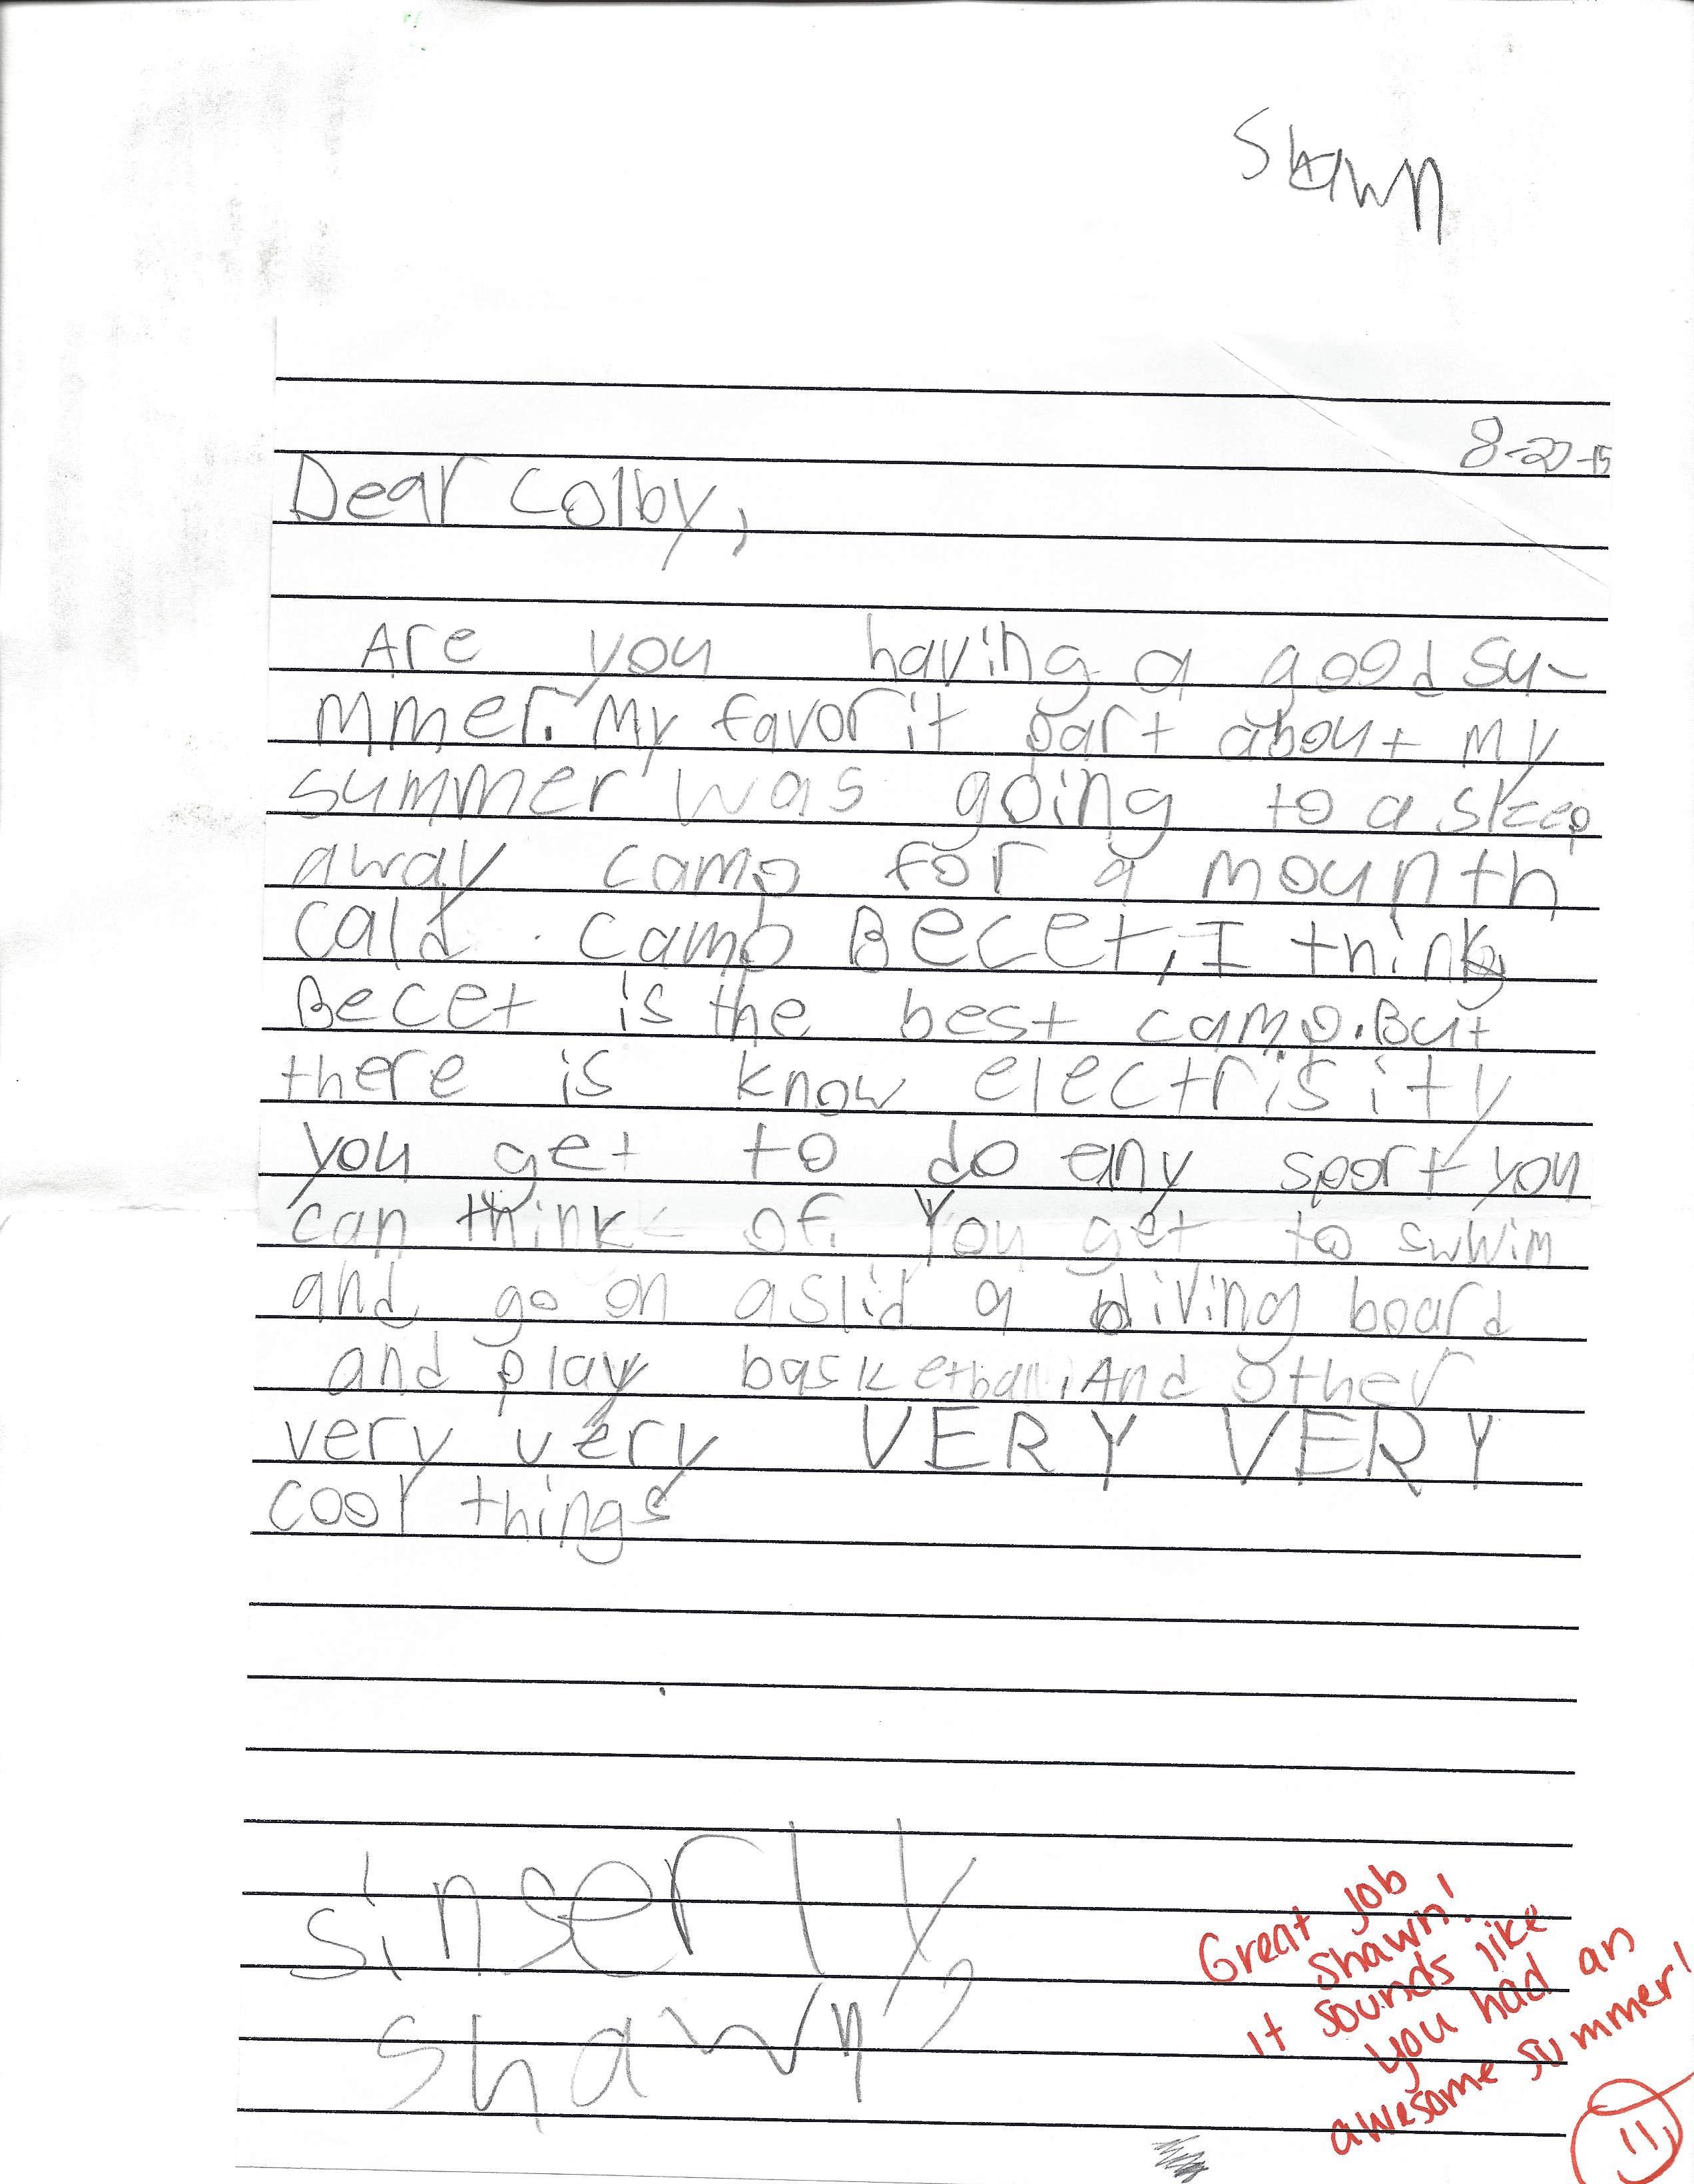 Shawn
8-27-15
Dear Colby,
Are you having a good su-
mmer. My favorit part about my
summer was going to a sleep
away camp for a mounth
cald camp Becet, I think
Becet is the best camp. But
there is know electrisity
you get to do eny sport you
can think of. You get to swwim
and go on a slid a diving board
and play basketball. And other
very very VERY VERY
cool things
sinserlly,
Shawn
Great job
Shawn!
It sounds like
you had an
awesome summer!